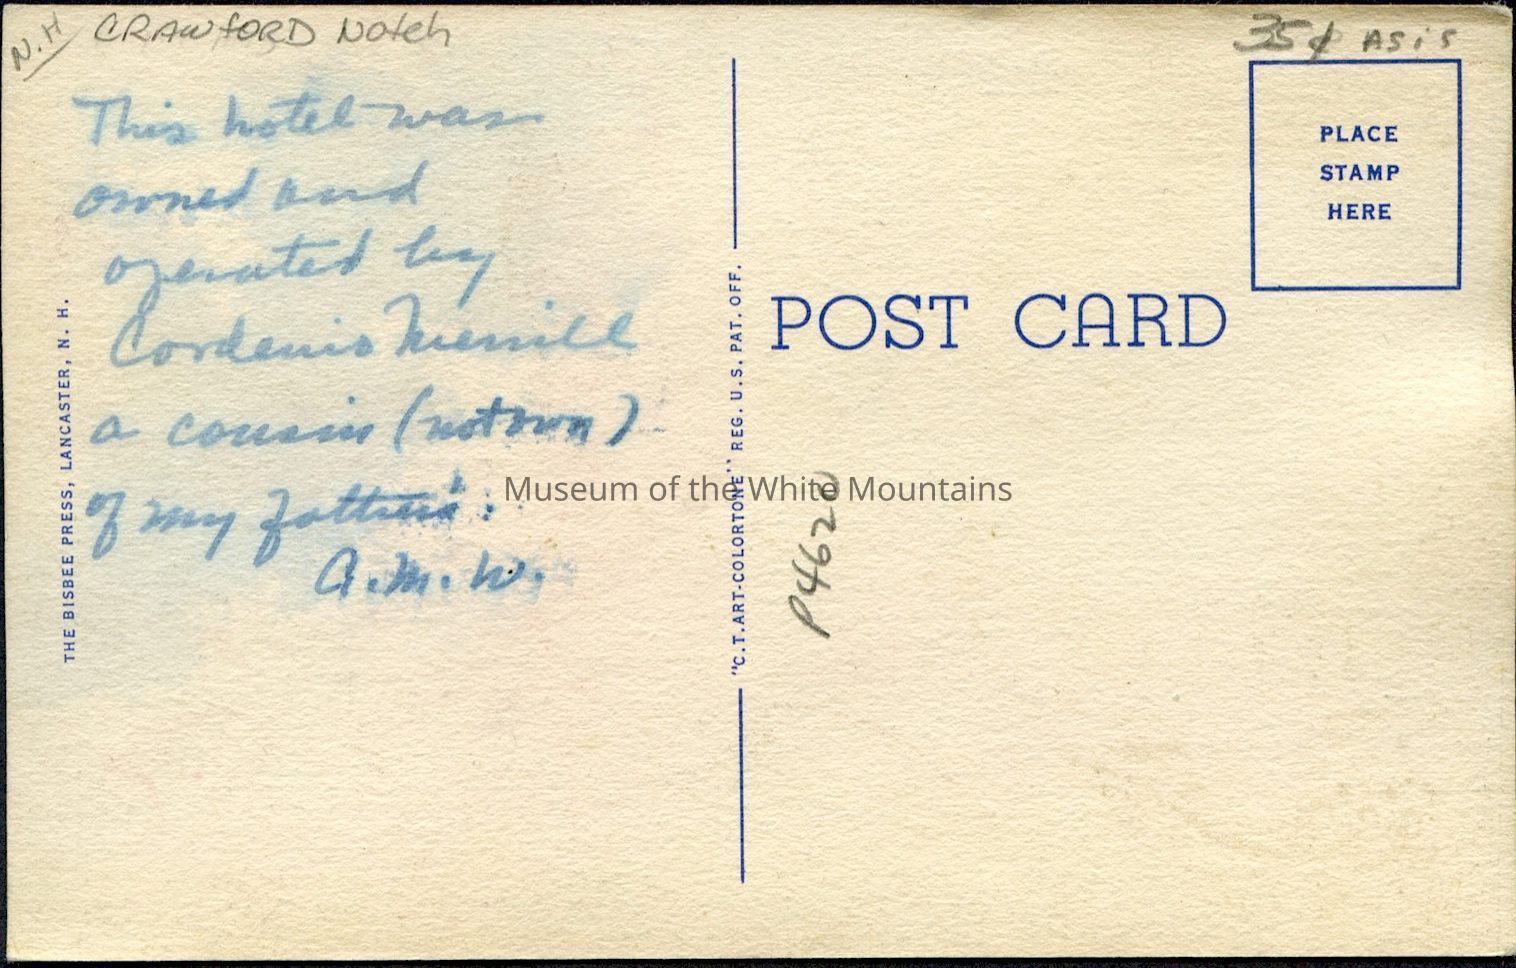 N.H CRAWFORD Notch
35¢ AS is
This hotel was
owned and
operated by
Cordenio Merrill
a cousin (not own)
of my father's.
A.M.W.
THE BISBEE PRESS, LANCASTER, N. H.
"C.T. ART-COLORTONE" REG. U.S. PAT. OFF.
PLACE
STAMP
HERE
POST CARD
P4620
Museum of the White Mountains